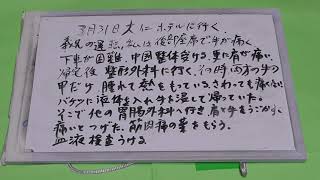 3月31日大にホテルに行く
義兄の運転、私は後部座席で手が痛く
下車が困難、中国整体受ける、更に肩が痛い
帰宅後 整形外科に行く、その時両方の手の
甲だけ 腫れて熱をもっている、さわっても痛くない
バケツに液体を入れ手を浸して帰っていた。
そこで他の胃腸外科へ行き肩と手をうごかすと
痛いとつげた、筋肉痛の薬をもらう。
血液検査うける